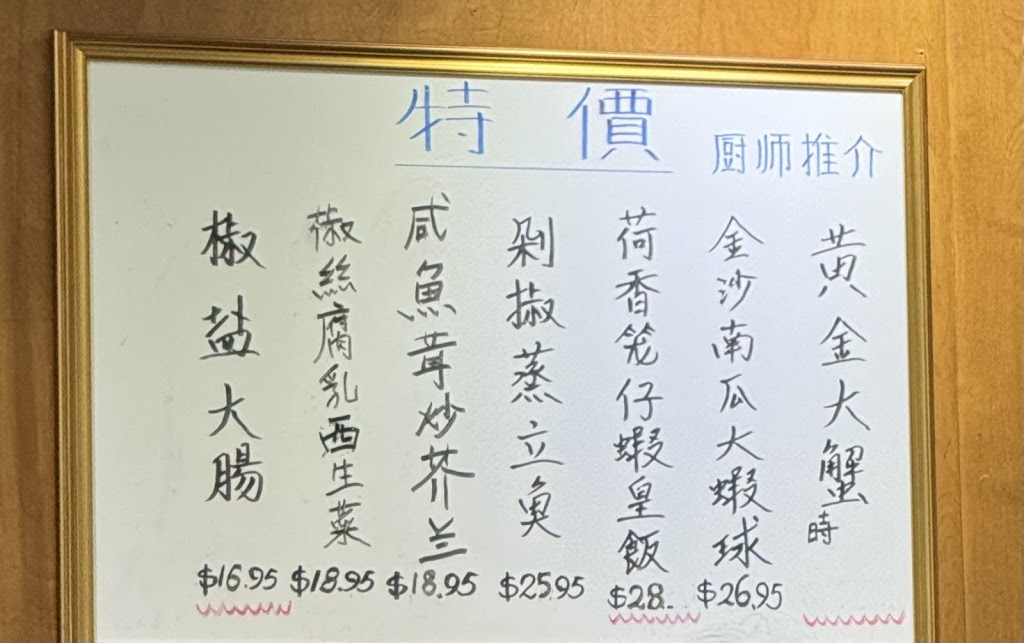 特價
厨师推介
黄金大蟹時
金沙南瓜大蝦球
$26.95
荷香笼仔蝦皇飯
$28.
剁椒蒸立魚
$25.95
咸魚茸炒芥兰
$18.95
椒絲腐乳西生菜
$18.95
椒盐大腸
$16.95